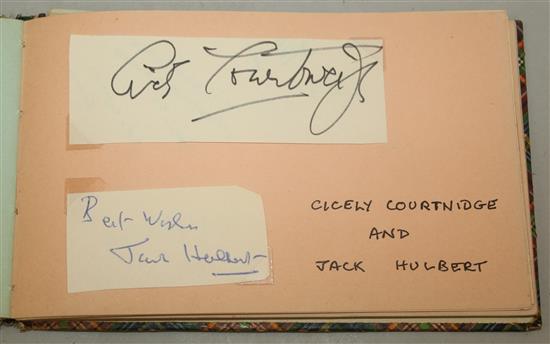 Cicely Courtneidge
Best Wishes
Jack Hulbert
CICELY COURTNIDGE
AND
JACK HULBERT